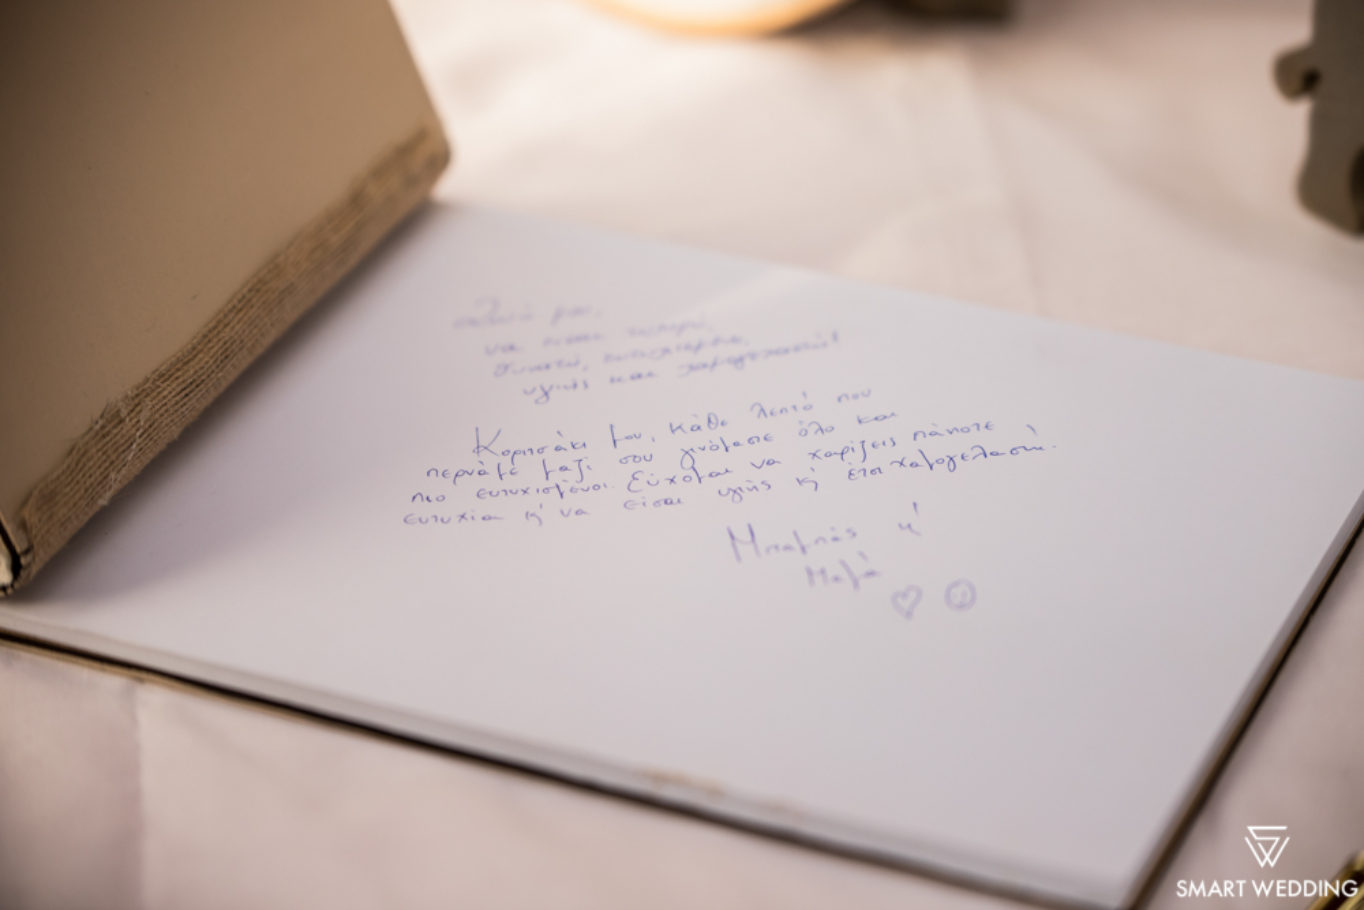 μου,
να είσαι
δυνατή, ευτυχισμένη,
υγιής και χαμογελαστή!
Κοριτσάκι μου, κάθε λεπτό που
περνάμε μαζί σου γινόμαστε όλο και
πιο ευτυχισμένοι. Εύχομαι να χαρίζεις πάντοτε
ευτυχία κ' να είσαι υγιής κ' έτσι χαμογελαστή.
Μπαμπάς κ'
Μαμά
SMART WEDDING